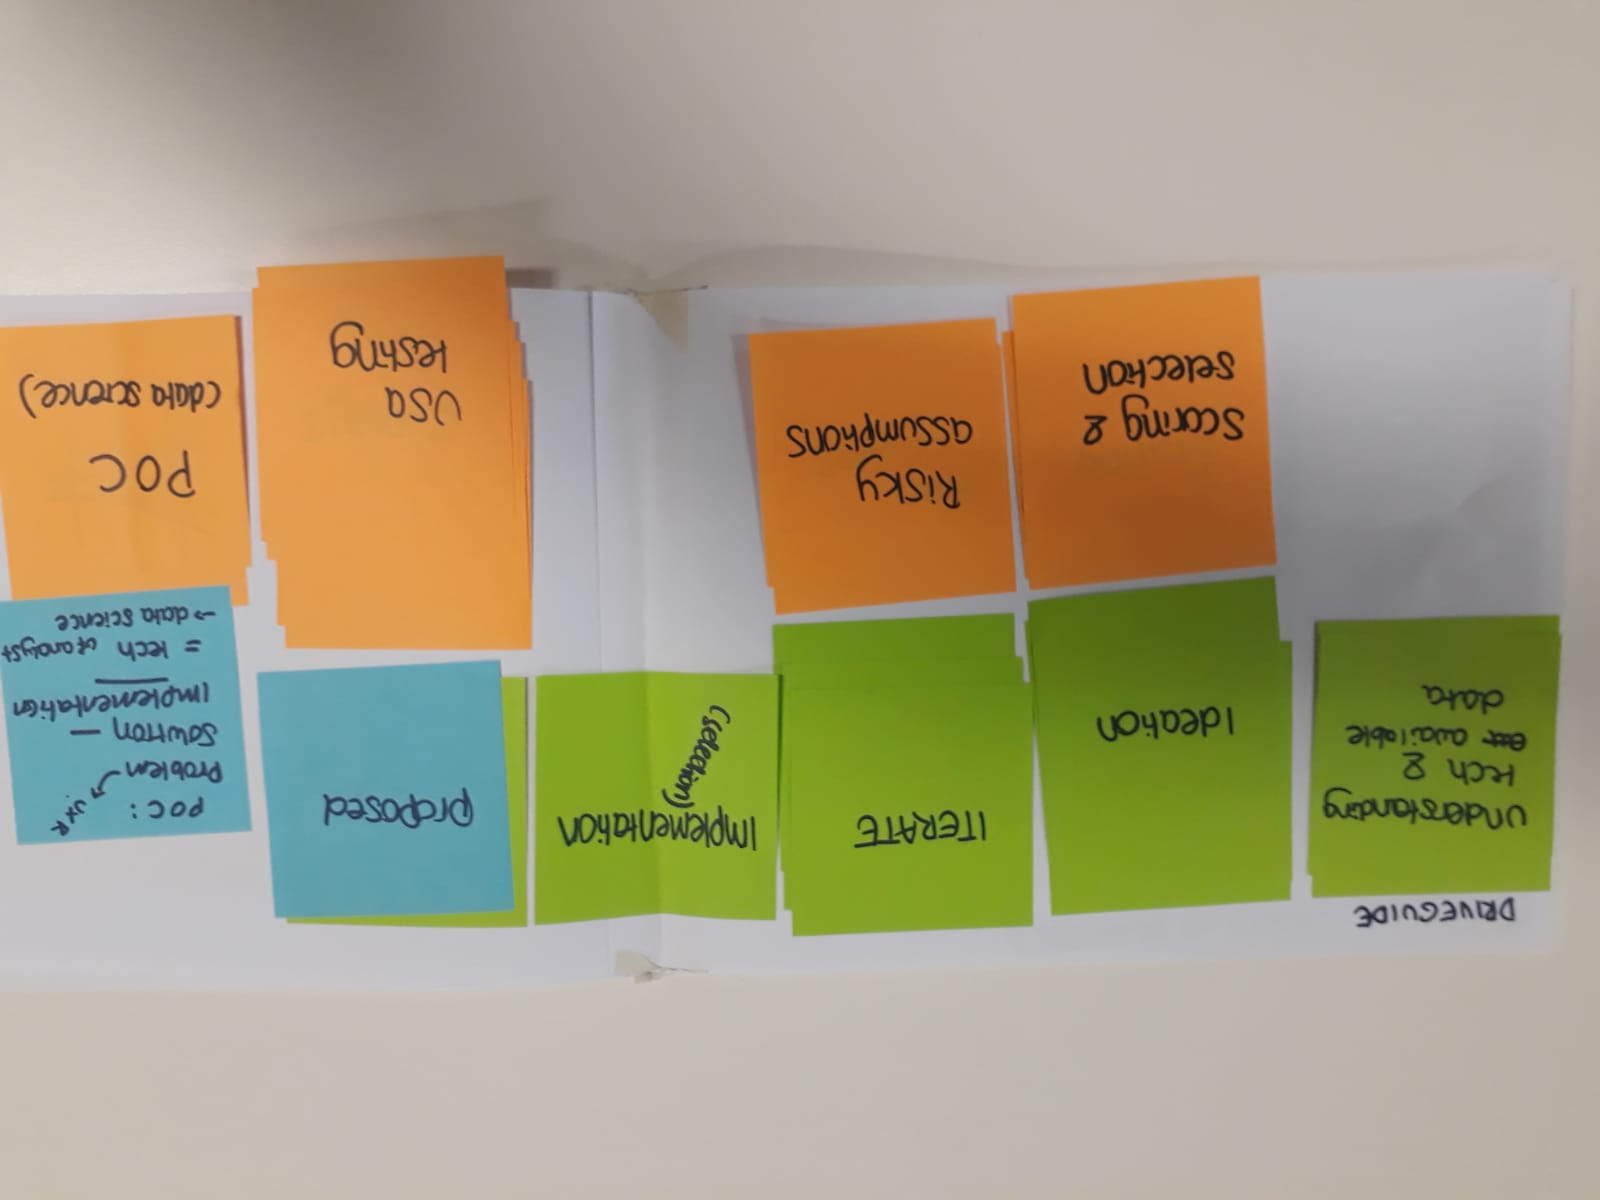 DRIVEGUIDE
Understanding
tech &
available
data
Ideation
ITERATE
Implementation
(selection)
proposed
POC:
UXR
Problem
solution —
Implementation
= tech of analyst
→ data science
Scoring &
selection
Risky
assumptions
USA
testing
POC
(data science)